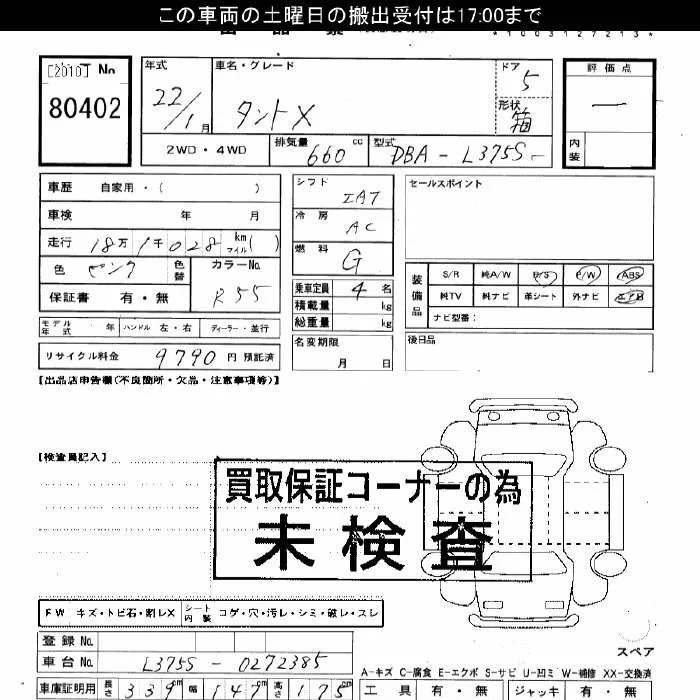 この車両の土曜日の搬出受付は17:00まで
*1003127213*
[2010] No 80402
年式 22/1月
車名・グレード タントX
ドア 5
形状 箱
評価点 —
内装
2WD・4WD
排気量 660 cc
型式 DBA-L375S-
車歴 自家用・( )
車検 年 月
走行 18万1千028 km マイル ( )
色 ピンク 色替 カラーNo. R55
保証書 有・無
シフト IAT
冷房 AC
燃料 G
乗車定員 4 名
積載量 kg
総重量 kg
セールスポイント
装備品 S/R 純A/W P/S P/W ABS
純TV 純ナビ 革シート 外ナビ エアB
ナビ型番:
モデル年式 年 ハンドル 左・右 ディーラー・並行
名変期限 月 日
後日品
リサイクル料金 9790 円 預託済
【出品店申告欄(不良箇所・欠品・注意事項等)】
【検査員記入】
買取保証コーナーの為
未検査
FW キズ・トビ石・割レX シート内装 コゲ・穴・汚レ・シミ・破レ・スレ
登録No.
車台No. L375S-0272385
スペア
車庫証明用 長さ 339cm 幅 147cm 高さ 175cm
A-キズ C-腐食 E-エクボ S-サビ U-凹ミ W-補修 XX-交換済
工具 有・無 ジャッキ 有・無